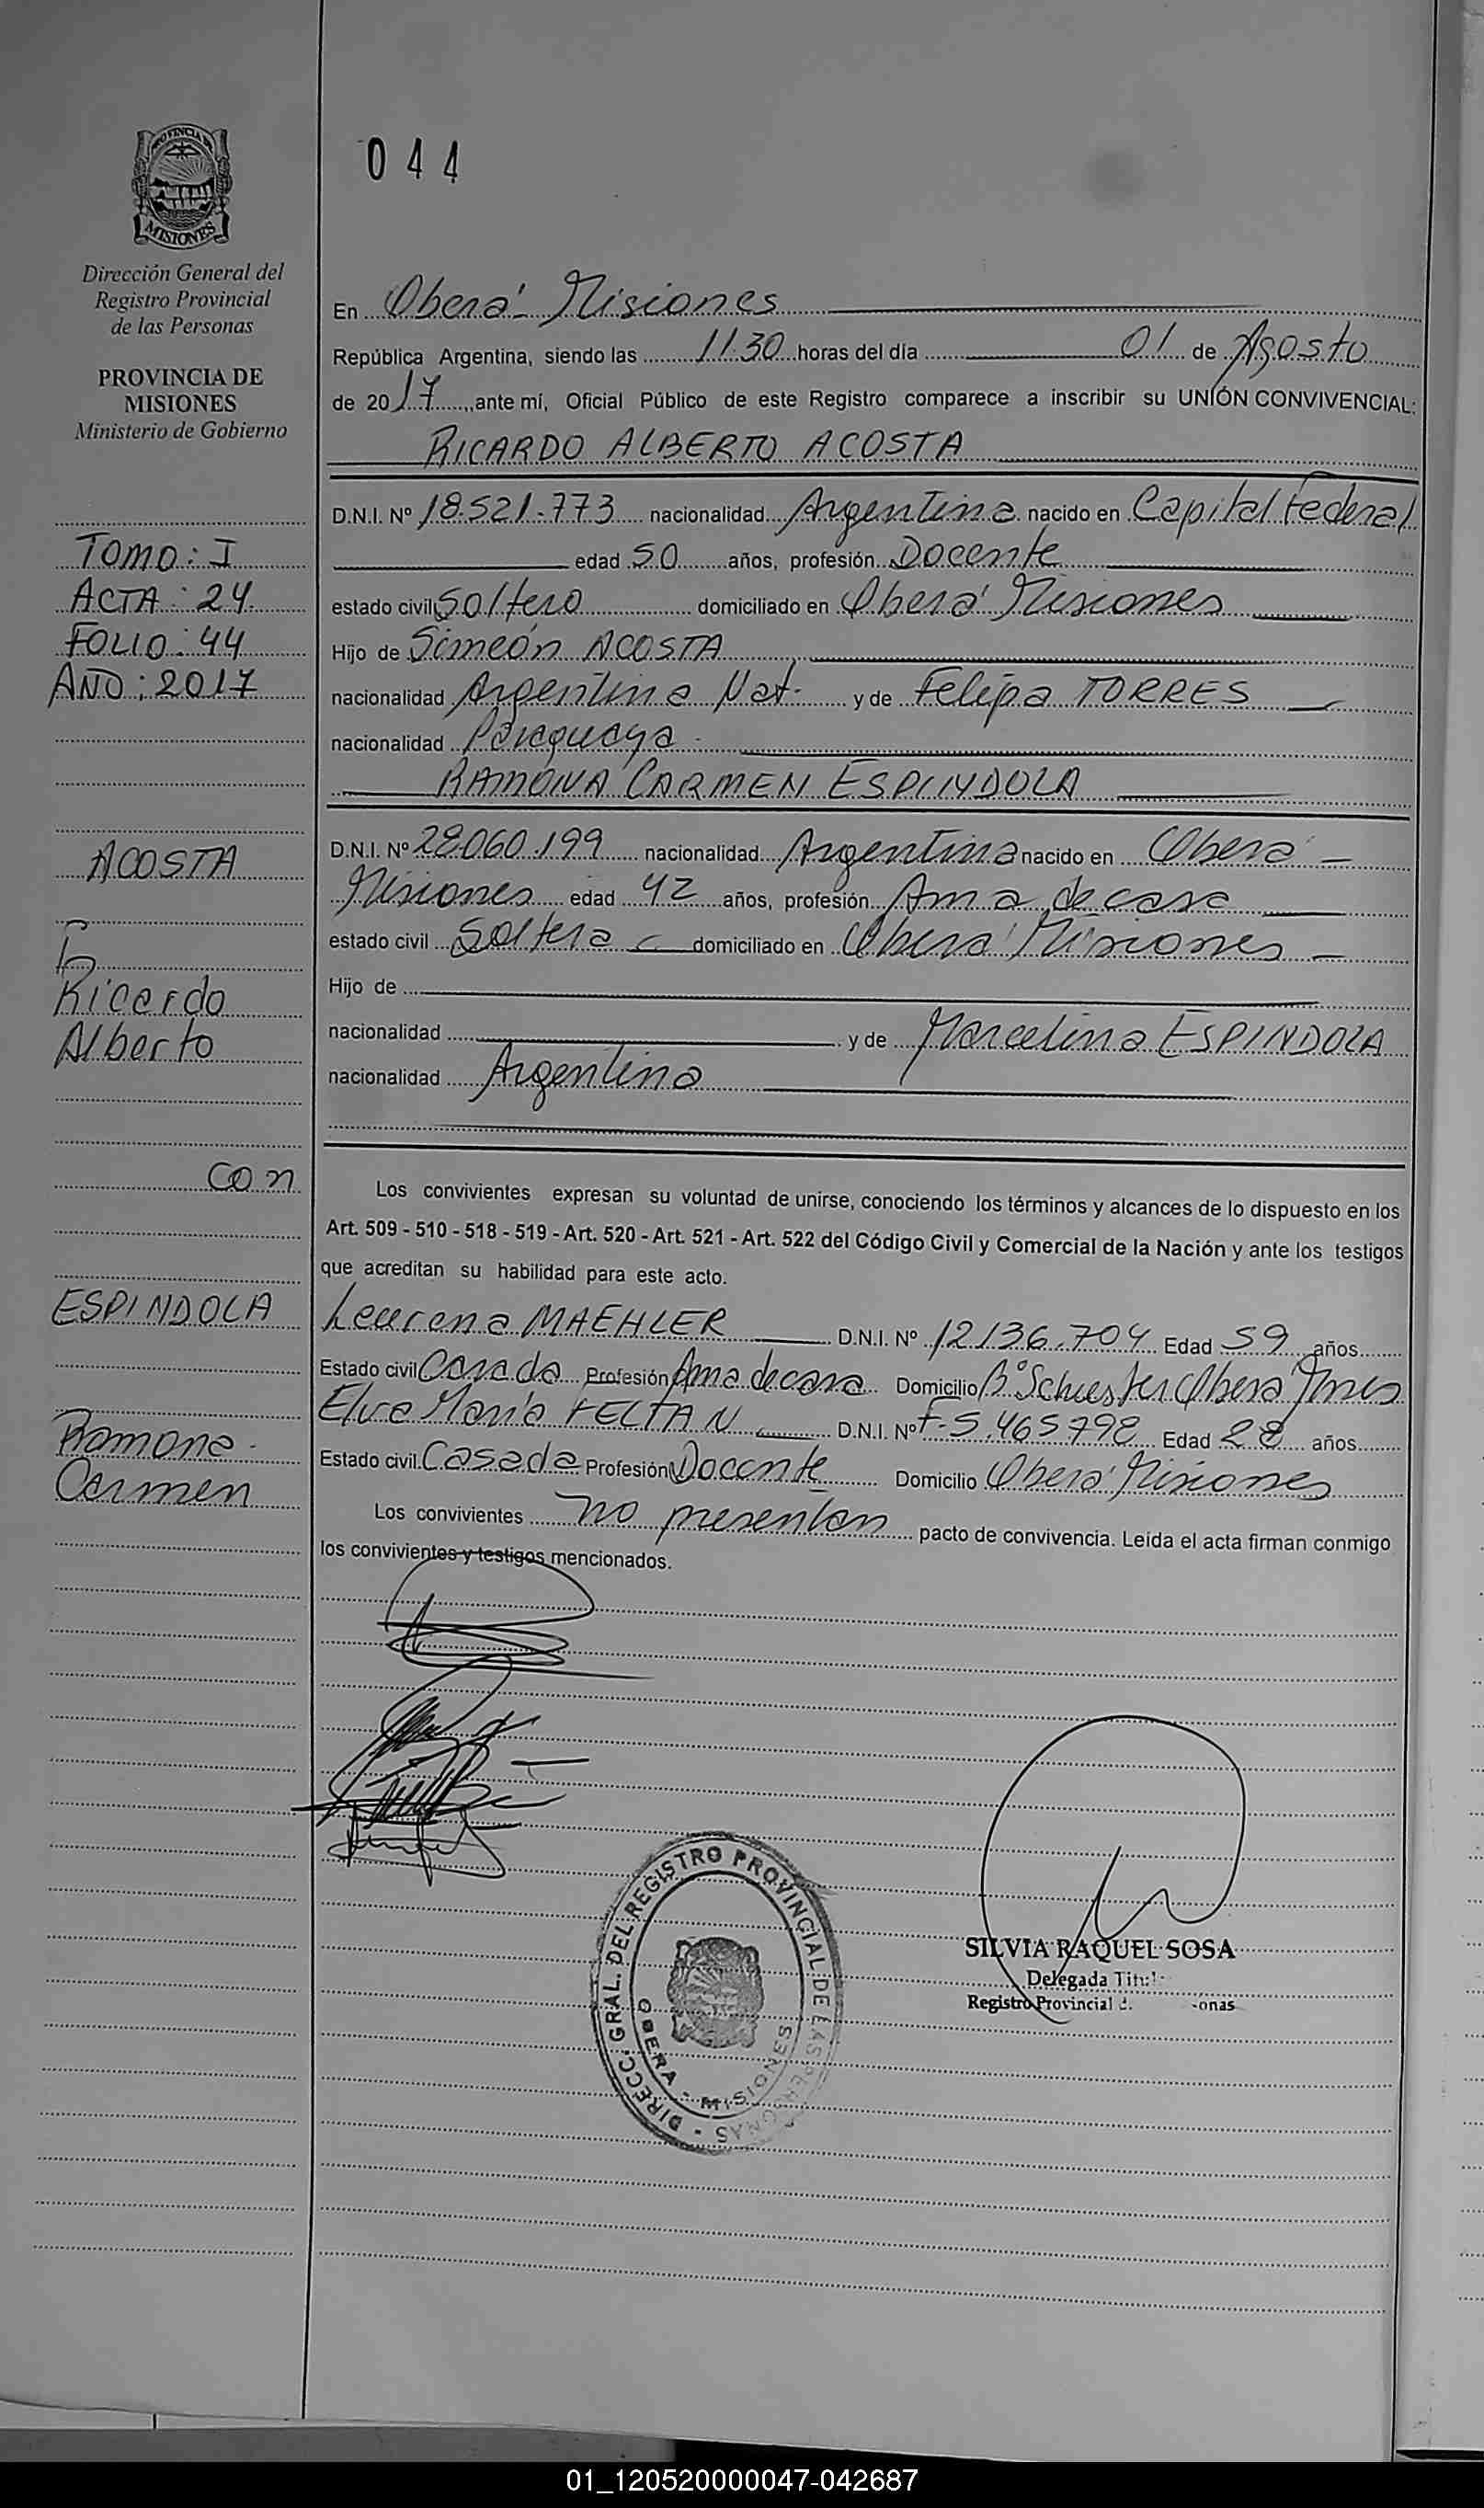 PROVINCIA DE
MISIONES
Dirección General del
Registro Provincial
de las Personas
PROVINCIA DE
MISIONES
Ministerio de Gobierno
TOMO: I
ACTA: 24.
FOLIO: 44
AÑO: 2017
ACOSTA
Ricardo
Alberto
con
ESPINDOLA
Ramona
Carmen
044
En Oberá - Misiones
República Argentina, siendo las 11.30 horas del día 01 de Agosto
de 2017, ante mí, Oficial Público de este Registro comparece a inscribir su UNIÓN CONVIVENCIAL:
RICARDO ALBERTO ACOSTA
D.N.I. Nº 18.521.773 nacionalidad Argentina nacido en Capital Federal
edad 50 años, profesión Docente
estado civil Soltero domiciliado en Oberá Misiones
Hijo de Simeón ACOSTA
nacionalidad Argentina Nat. y de Felipa TORRES
nacionalidad Paraguaya
RAMONA CARMEN ESPINDOLA
D.N.I. Nº 28.060.199 nacionalidad Argentina nacido en Oberá -
Misiones edad 42 años, profesión Ama de casa
estado civil Soltera domiciliado en Oberá Misiones
Hijo de
nacionalidad y de Marcelina ESPINDOLA
nacionalidad Argentina
Los convivientes expresan su voluntad de unirse, conociendo los términos y alcances de lo dispuesto en los
Art. 509 - 510 - 518 - 519 - Art. 520 - Art. 521 - Art. 522 del Código Civil y Comercial de la Nación y ante los testigos
que acreditan su habilidad para este acto.
Laurena MAEHLER D.N.I. Nº 12.136.704 Edad 59 años
Estado civil Casada Profesión Ama de casa Domicilio Bº Schuster Oberá Mnes
Elva María FELTAN D.N.I. Nº F-5.465798 Edad 28 años
Estado civil Casada Profesión Docente Domicilio Oberá Misiones
Los convivientes no presentan pacto de convivencia. Leída el acta firman conmigo
los convivientes y testigos mencionados.
DIRECC. GRAL. DEL REGISTRO PROVINCIAL DE LAS PERSONAS -
OBERA - MISIONES
SILVIA RAQUEL SOSA
Delegada
Registro Provincial
01_120520000047-042687